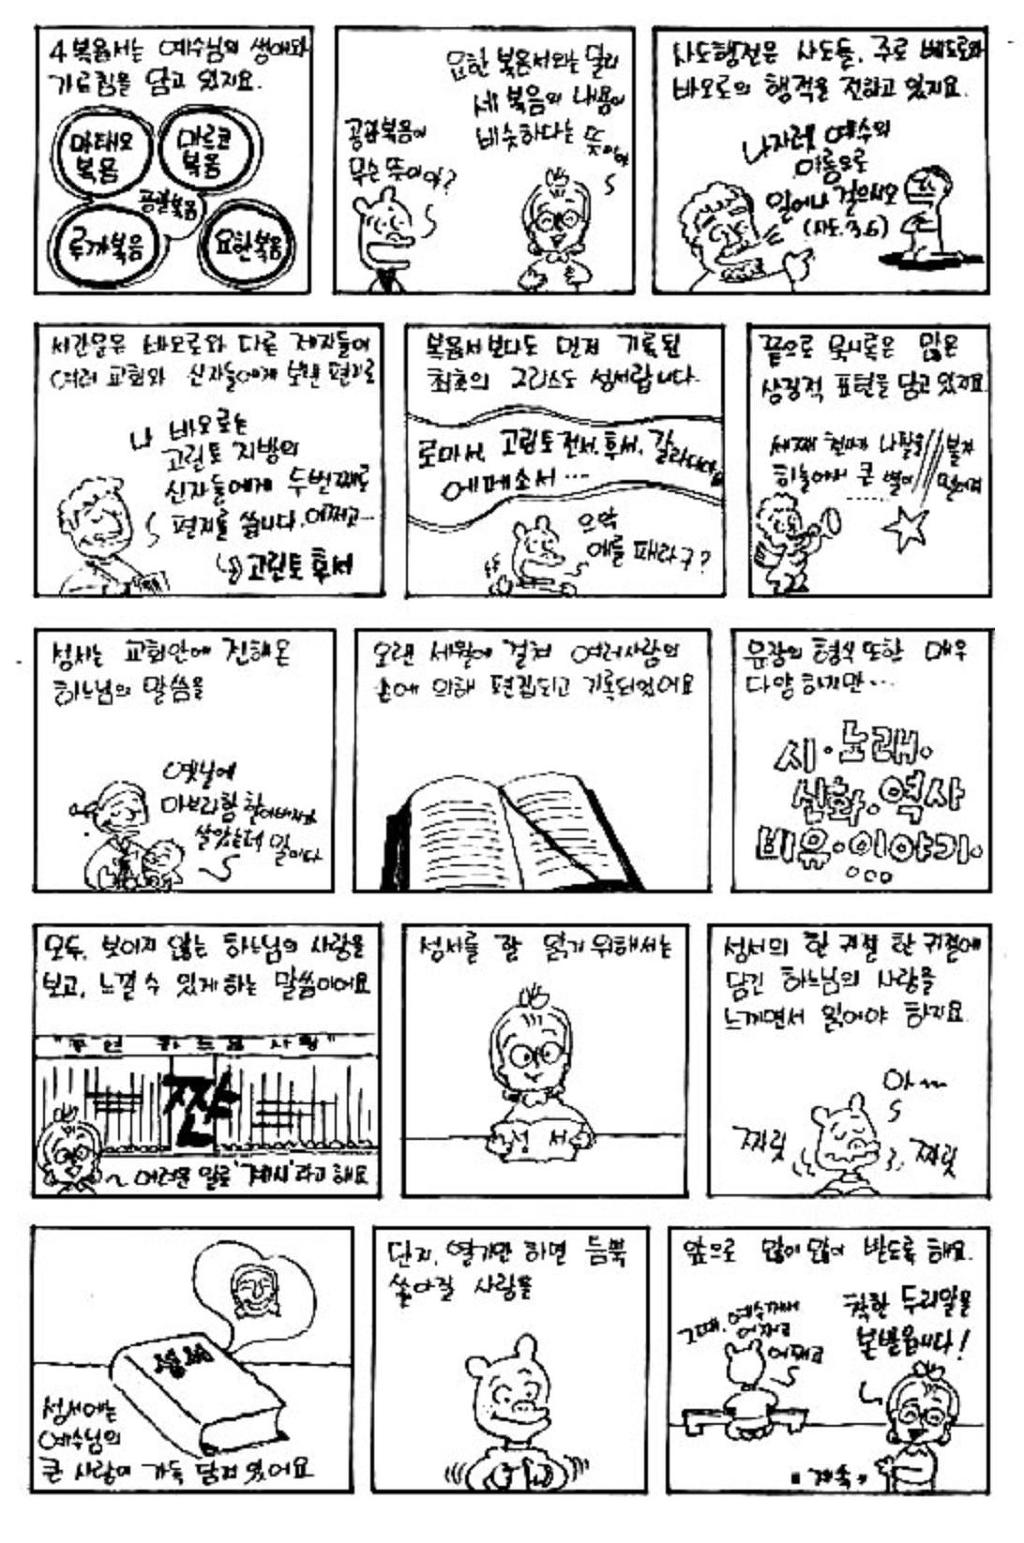 4복음서는 예수님의 생애와
가르침을 담고 있지요.
마태오
복음
마르코
복음
공관복음
루가복음
요한복음
요한 복음서와는 달리
세 복음의 내용이
비슷하다는 뜻이야
공관복음이
무슨 뜻이야?
사도행전은 사도들, 주로 베드로와
바오로의 행적을 전하고 있지요.
나자렛 예수의
이름으로
일어나 걸으시오
(사도. 3,6)
서간문은 바오로와 다른 제자들이
여러 교회와 신자들에게 보낸 편지로
나 바오로는
고린토 지방의
신자들에게 두번째로
편지를 씁니다. 어쩌고...
고린토 후서
복음서보다도 먼저 기록된
최초의 그리스도 성서랍니다.
로마서, 고린토 전서, 후서, 갈라디아
에페소서 ...
으악
애를 패라구?
끝으로 묵시록은 많은
상징적 표현을 담고 있지요.
세째 천사가 나팔을 불자
하늘에서 큰 별이 떨어져
성서는 교회안에 전해온
하느님의 말씀을
옛날에
아브라함 할아버지가
살았는데 말이다
오랜 세월에 걸쳐 여러사람의
손에 의해 편집되고 기록되었어요
문장의 형식 또한 매우
다양하지만...
시·노래·
신화·역사
비유·이야기·
모두, 보이지 않는 하느님의 사랑을
보고, 느낄 수 있게 하는 말씀이어요
"공연 하느님 사랑"
짠
어려운 말로 '계시'라고 해요
성서를 잘 읽기 위해서는
성서
성서의 한 귀절 한 귀절에
담긴 하느님의 사랑을
느끼면서 읽어야 하지요.
아~
찌릿
찌릿
성서
성서에는
예수님의
큰 사랑이 가득 담겨 있어요
단지, 열기만 하면 듬뿍
쏟아질 사랑을
앞으로 많이 많이 받도록 해요.
그때, 예수께서
어쩌고
어쩌고
착한 두리알을
본받읍시다!
"계속"